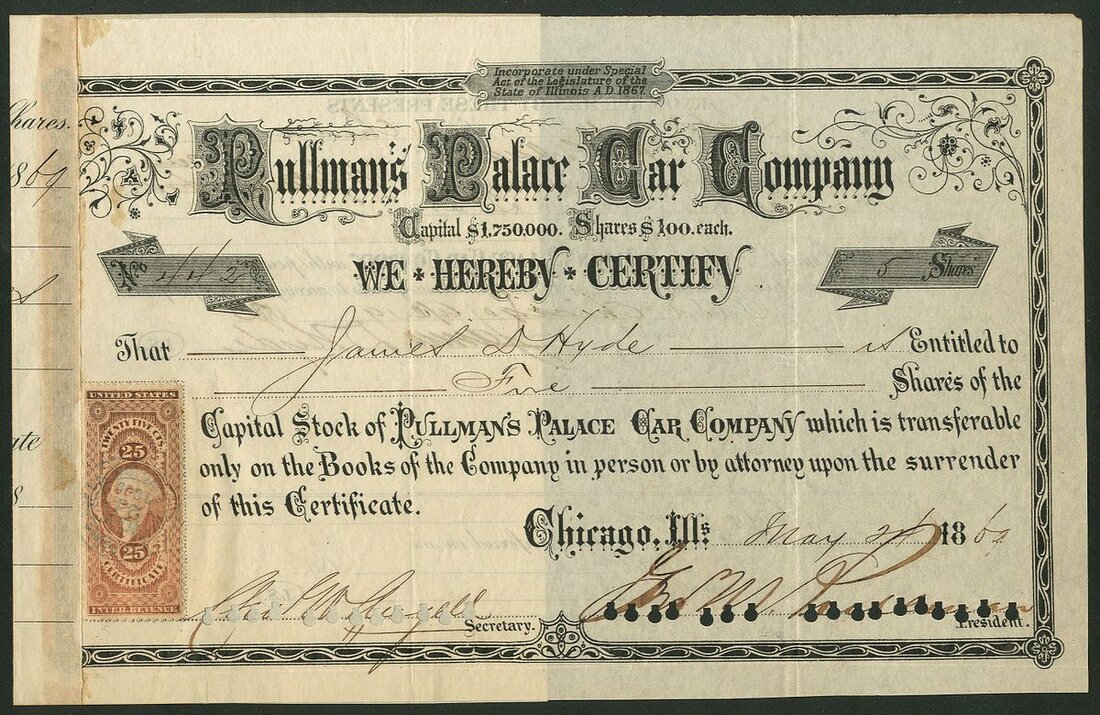 Incorporate under Special
Act of the Legislature of the
State of Illinois A.D. 1867.
hares.
Pullman's Palace Car Company
1869
Capital $1,750,000. Shares $100. each.
No 112
5 Shares
WE HEREBY CERTIFY
That James D Hyde is Entitled to
Five Shares of the
UNITED STATES
TWENTY FIVE
25
25
CERTIFICATE
INTER. REVENUE
Capital Stock of PULLMAN'S PALACE CAR COMPANY which is transferable
only on the Books of the Company in person or by attorney upon the surrender
of this Certificate.
Chicago, Ills. May 1869
Secretary.
Geo M. Pullman
President.